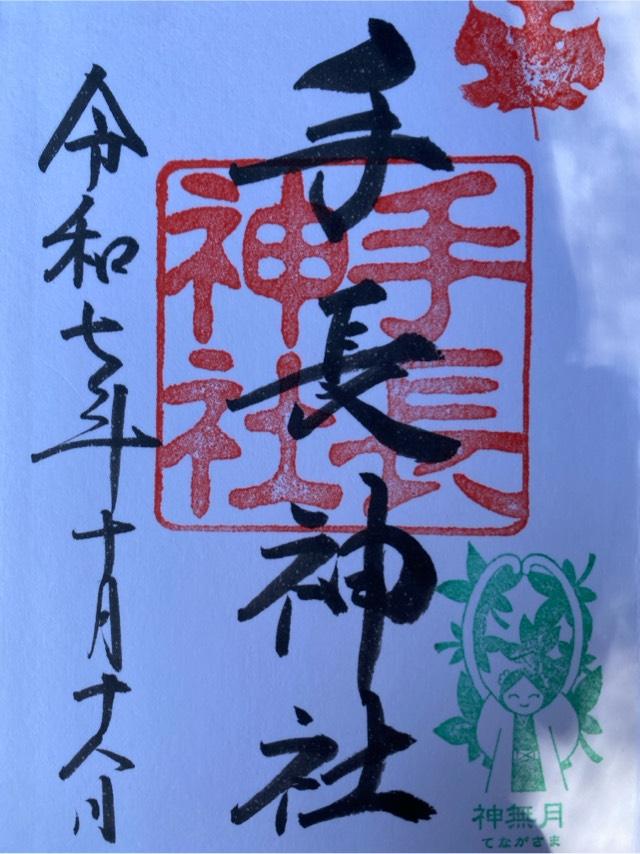 手長神社
手長
神社
令和七年十月十八日
神無月
てながさま